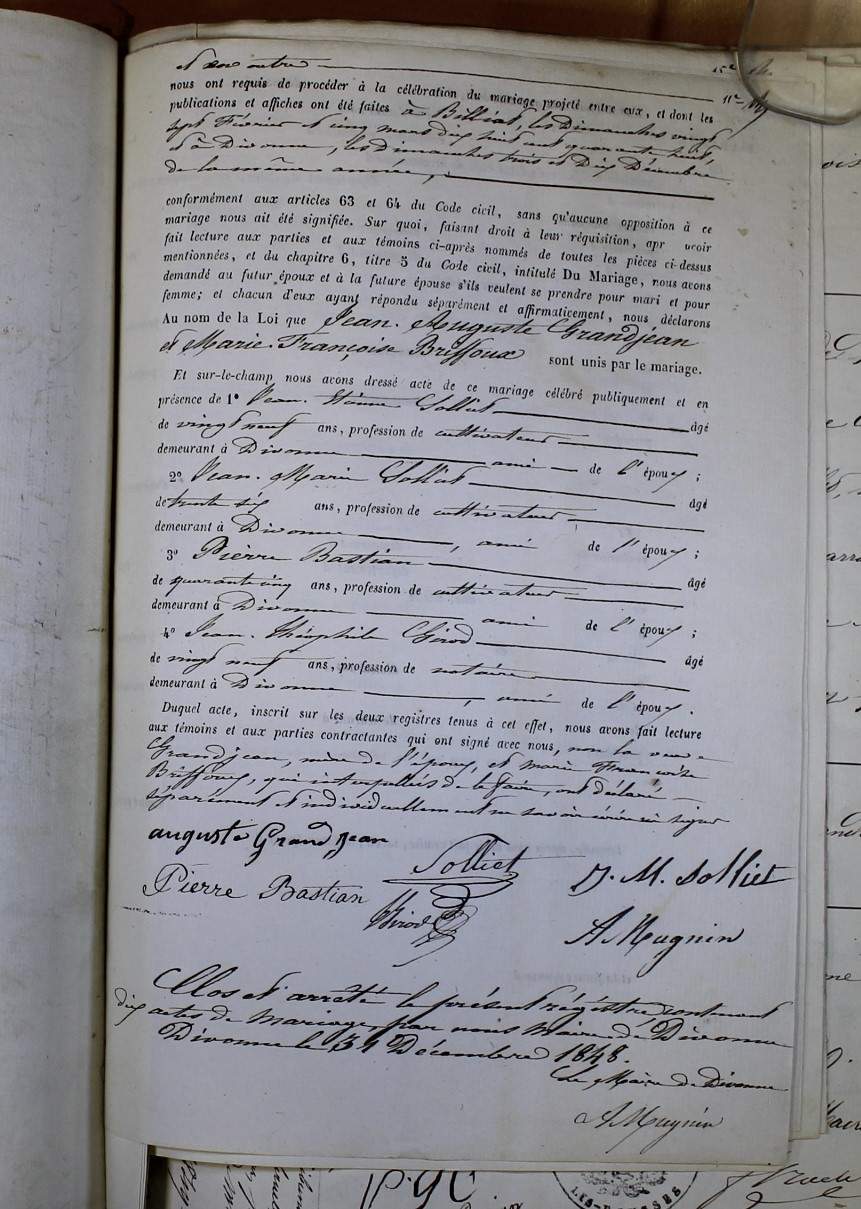 nous ont requis de procéder à la célébration du mariage projeté entre eux, et dont les
publications et affiches ont été faites à Billiat, les Dimanches vingt
sept Février et cinq mars dix huit cent quarante huit,
et à Divonne, les Dimanches trois et Dix Décembre
de la même année,
conformément aux articles 63 et 64 du Code civil, sans qu'aucune opposition à ce
mariage nous ait été signifiée. Sur quoi, faisant droit à leur réquisition, apr avoir
fait lecture aux parties et aux témoins ci-après nommés de toutes les pièces ci-dessus
mentionnées, et du chapitre 6, titre 5 du Code civil, intitulé Du Mariage, nous avons
demandé au futur époux et à la future épouse s'ils veulent se prendre pour mari et pour
femme; et chacun d'eux ayant répondu séparément et affirmativement, nous déclarons
Au nom de la Loi que Jean. Auguste Grandjean
et Marie. Françoise Briffoux sont unis par le mariage.
Et sur-le-champ nous avons dressé acte de ce mariage célébré publiquement et en
présence de 1º Jean. Solliet âgé
de vingt neuf ans, profession de cultivateur
demeurant à Divonne ami de l'époux ;
2º Jean. Marie Solliet âgé
de trente six ans, profession de cultivateur
demeurant à Divonne, ami de l'époux ;
3º Pierre Bastian âgé
de quarante cinq ans, profession de cultivateur
demeurant à Divonne ami de l'époux ;
4º Jean. Théophile Girod âgé
de vingt neuf ans, profession de notaire
demeurant à Divonne, ami de l'époux.
Duquel acte, inscrit sur les deux registres tenus à cet effet, nous avons fait lecture
aux témoins et aux parties contractantes qui ont signé avec nous, non la veuve
Grandjean, mère de l'époux, et marie Françoise
Briffoux, qui interpellés de le faire, ont déclaré
séparément et individuellement ne savoir écrire ni signer
auguste Grandjean
Solliet
J. M. Solliet
Pierre Bastian
Girod
A Mugnin
Clos et arrêté le présent régistré contenant
dix actes de Mariage, par nous Maire de Divonne
Divonne le 31 Décembre 1848.
Le Maire de Divonne
A Mugnin